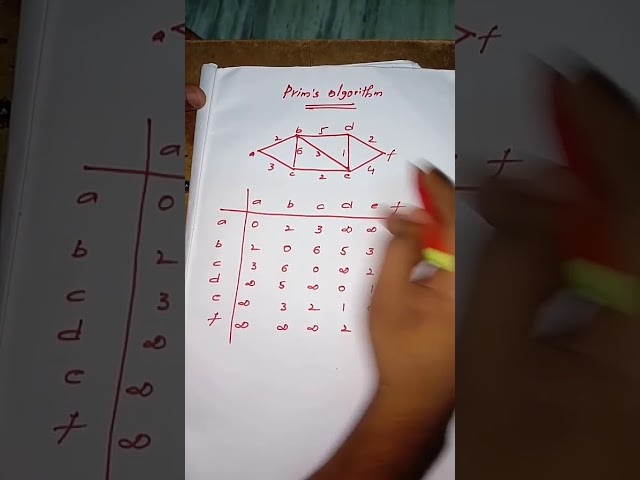 Prim's algorithm
b 5 d
2 2
a 6 3 1 f
3 c 2 e 4
a b c d e f
a 0 2 3 ∞ ∞
b 2 0 6 5 3
c 3 6 0 ∞ 2
d ∞ 5 ∞ 0 1
e ∞ 3 2 1
f ∞ ∞ ∞ 2